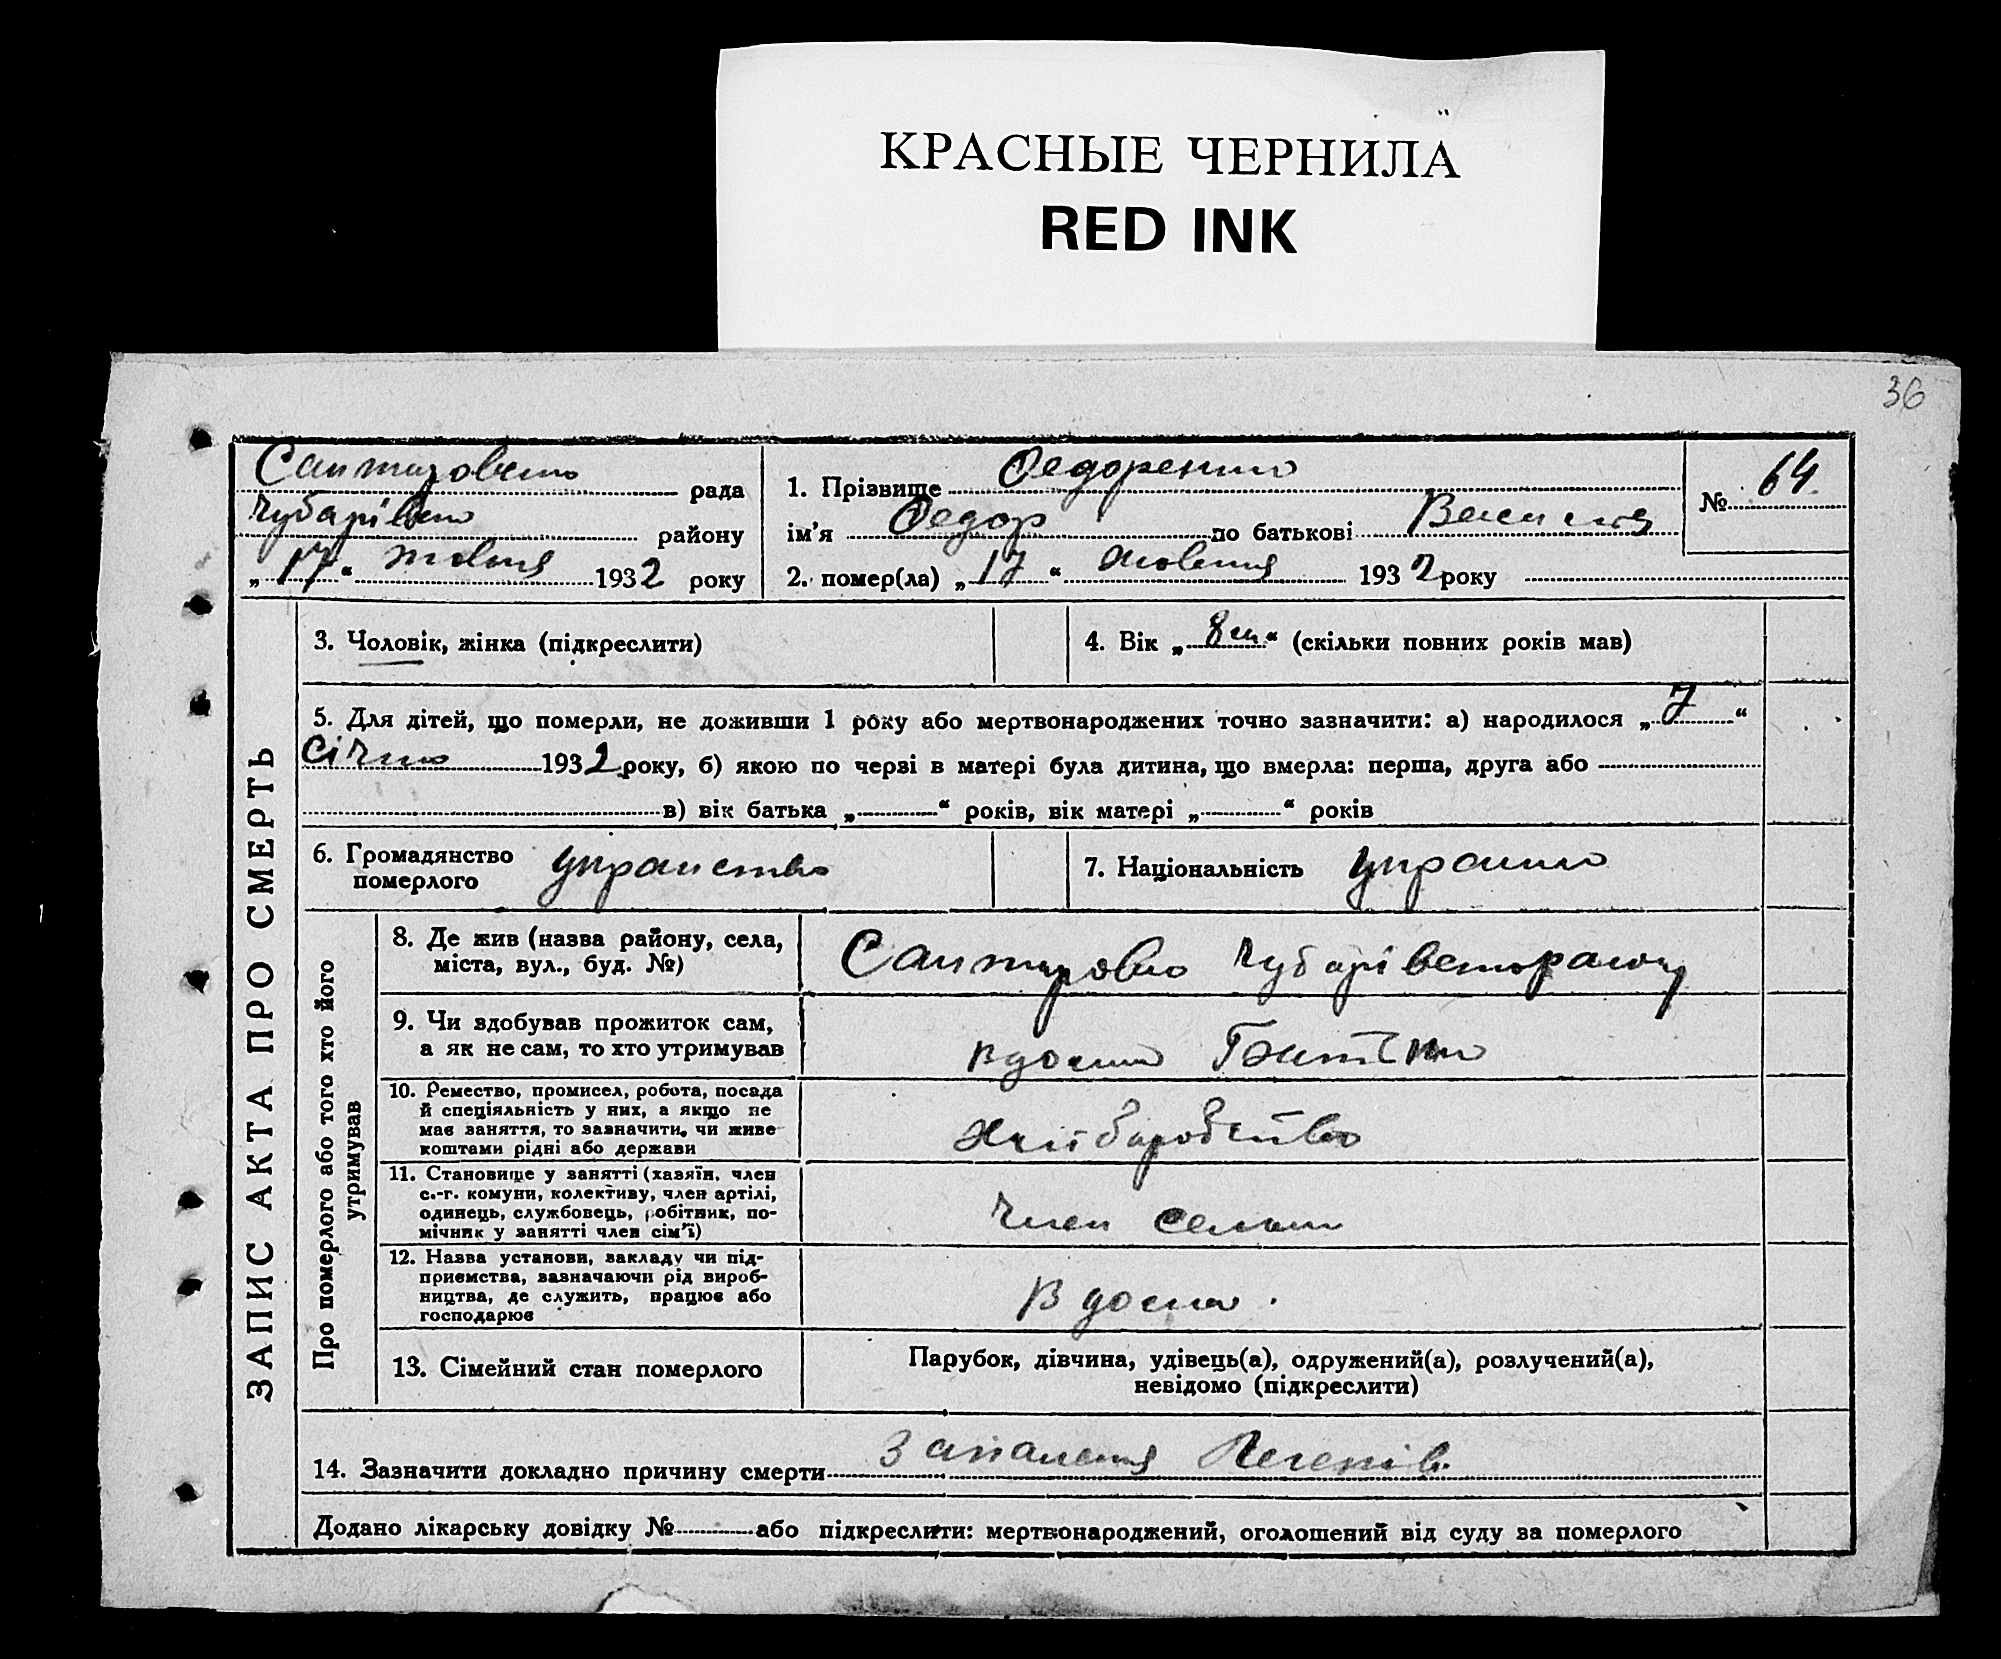 КРАСНЫЕ ЧЕРНИЛА
RED INK
36
рада
району
„17“ жовтня 1932 року
1. Прізвище Федоренко
ім'я Федор по батькові
2. помер(ла) „17“ жовтня 1932 року
№ 64
ЗАПИС АКТА ПРО СМЕРТЬ
3. Чоловік, жінка (підкреслити)
4. Вік „8 “ (скільки повних років мав)
5. Для дітей, що померли, не доживши 1 року або мертвонароджених точно зазначити: а) народилося „7“
січня 1932 року, б) якою по черзі в матері була дитина, що вмерла: перша, друга або
в) вік батька „ “ років, вік матері „ “ років
6. Громадянство
померлого
7. Національність
Про померлого або того хто його
утримував
8. Де жив (назва району, села,
міста, вул., буд. №)
9. Чи здобував прожиток сам,
а як не сам, то хто утримував
10. Ремество, промисел, робота, посада
й спеціяльність у них, а якщо не
має заняття, то зазначити, чи живе
коштами рідні або держави
11. Становище у занятті (хазяїн, член
с.-г. комуни, колективу, член артілі,
одинець, службовець, робітник, по-
мічник у занятті член сім'ї)
член
12. Назва установи, закладу чи під-
приємства, зазначаючи рід вироб-
ництва, де служить, працює або
господарює
13. Сімейний стан померлого
Парубок, дівчина, удівець(а), одружений(а), розлучений(а),
невідомо (підкреслити)
14. Зазначити докладно причину смерти Запалення Легенів.
Додано лікарську довідку № або підкреслити: мертвонароджений, оголошений від суду за померлого